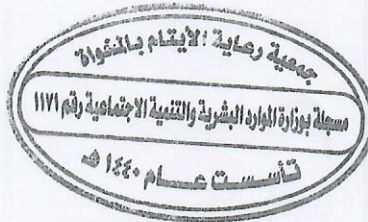 جمعية رعاية الأيتام بالمخواة
مسجلة بوزارة الموارد البشرية والتنمية الاجتماعية رقم ١١٧١
تأسست عام ١٤٤٠ هـ